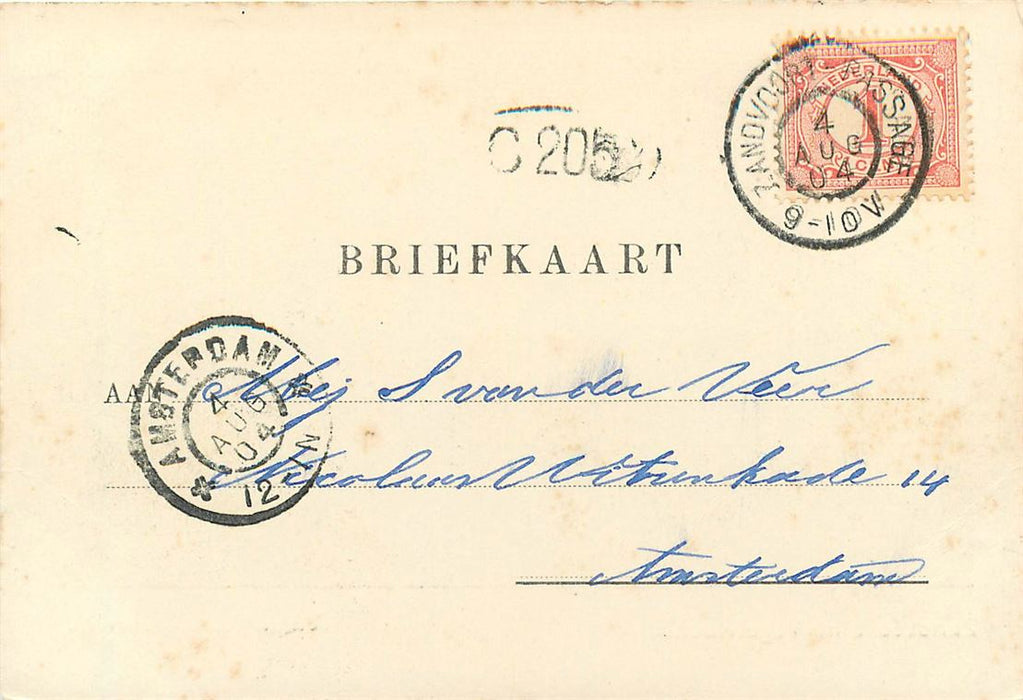 ZANDVOORT-PASSAGE
4
AUG
04
9-10V
NEDERLAND
1
CENT
C 205
BRIEFKAART
AMSTERDAM
4
AUG
04
12-1N
AAN Mej S van der Veer
Nicolaas Witsenkade 14
Amsterdam